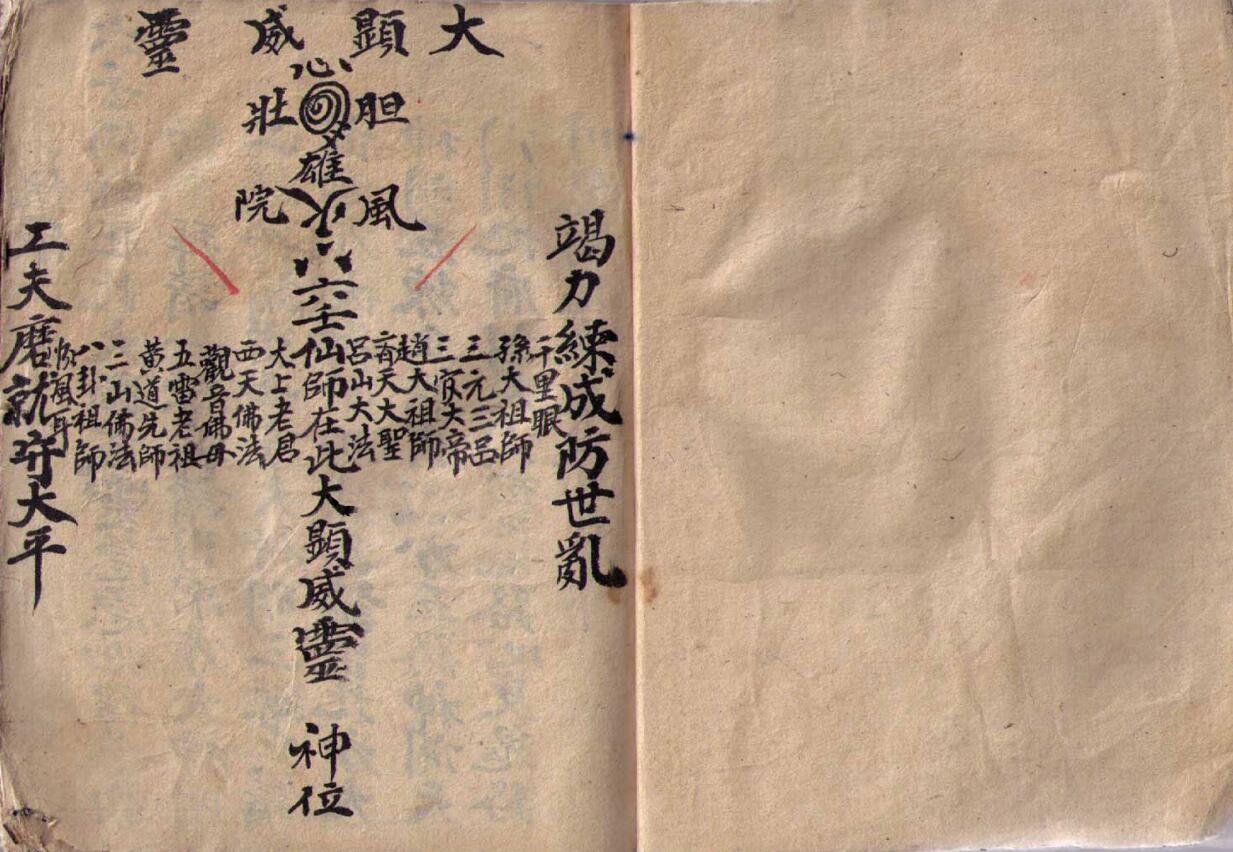 大顯威靈
心
胆壯
雄
風火院
竭力練成防世亂
千里眼
孫大祖師
三元三呂
三官大帝
趙大祖師
齊天大聖
呂山大法
六壬仙師在此大顯威靈 神位
大上老君
西天佛法
觀音佛母
五雷老祖
黃道先師
三山法
八卦祖師
順風耳
工夫磨就守大平